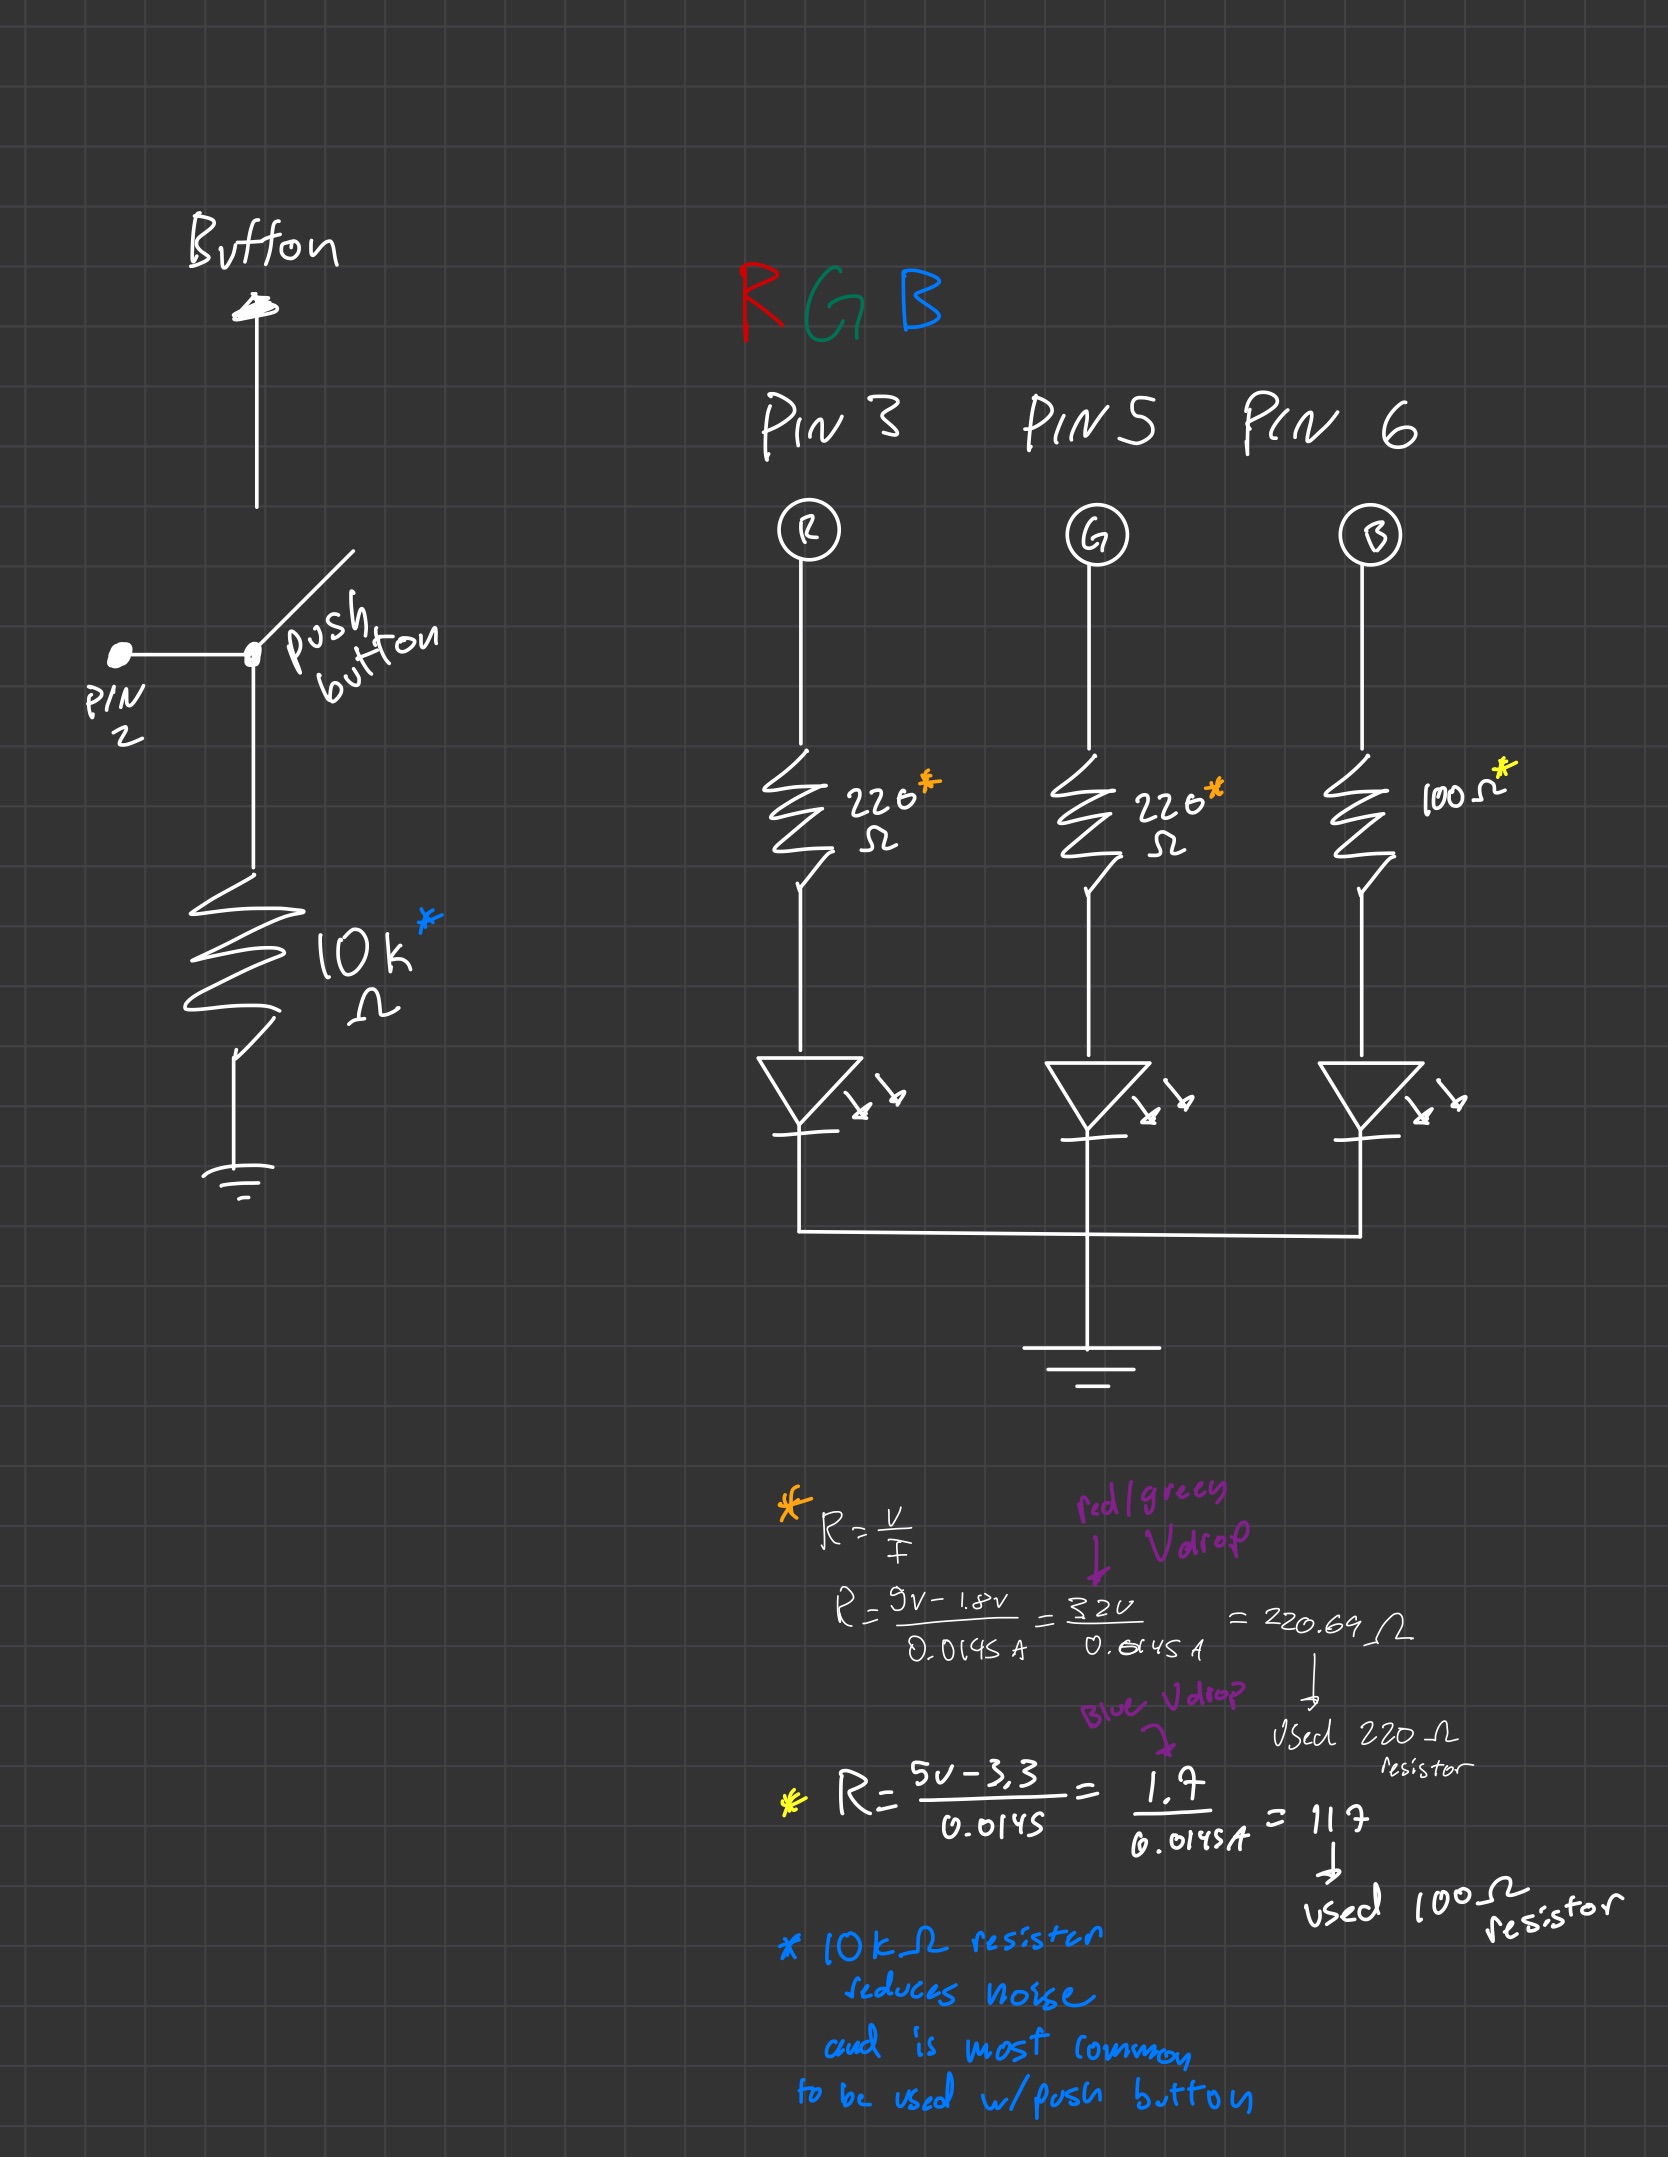 Button
RGB
PIN 3 PIN 5 PIN 6
R G B
push
button
PIN
2
220*
Ω
220*
Ω
100Ω*
10k*
Ω
* R = V/I
red/green
Vdrop
R = 5V - 1.8V / 0.0145 A = 3.2V / 0.0145 A = 220.69 Ω
used 220 Ω
resistor
Blue Vdrop
* R = 5V - 3.3 / 0.0145 = 1.7 / 0.0145A = 117
used 100Ω
resistor
* 10kΩ resistor
reduces noise
and is most common
to be used w/push button